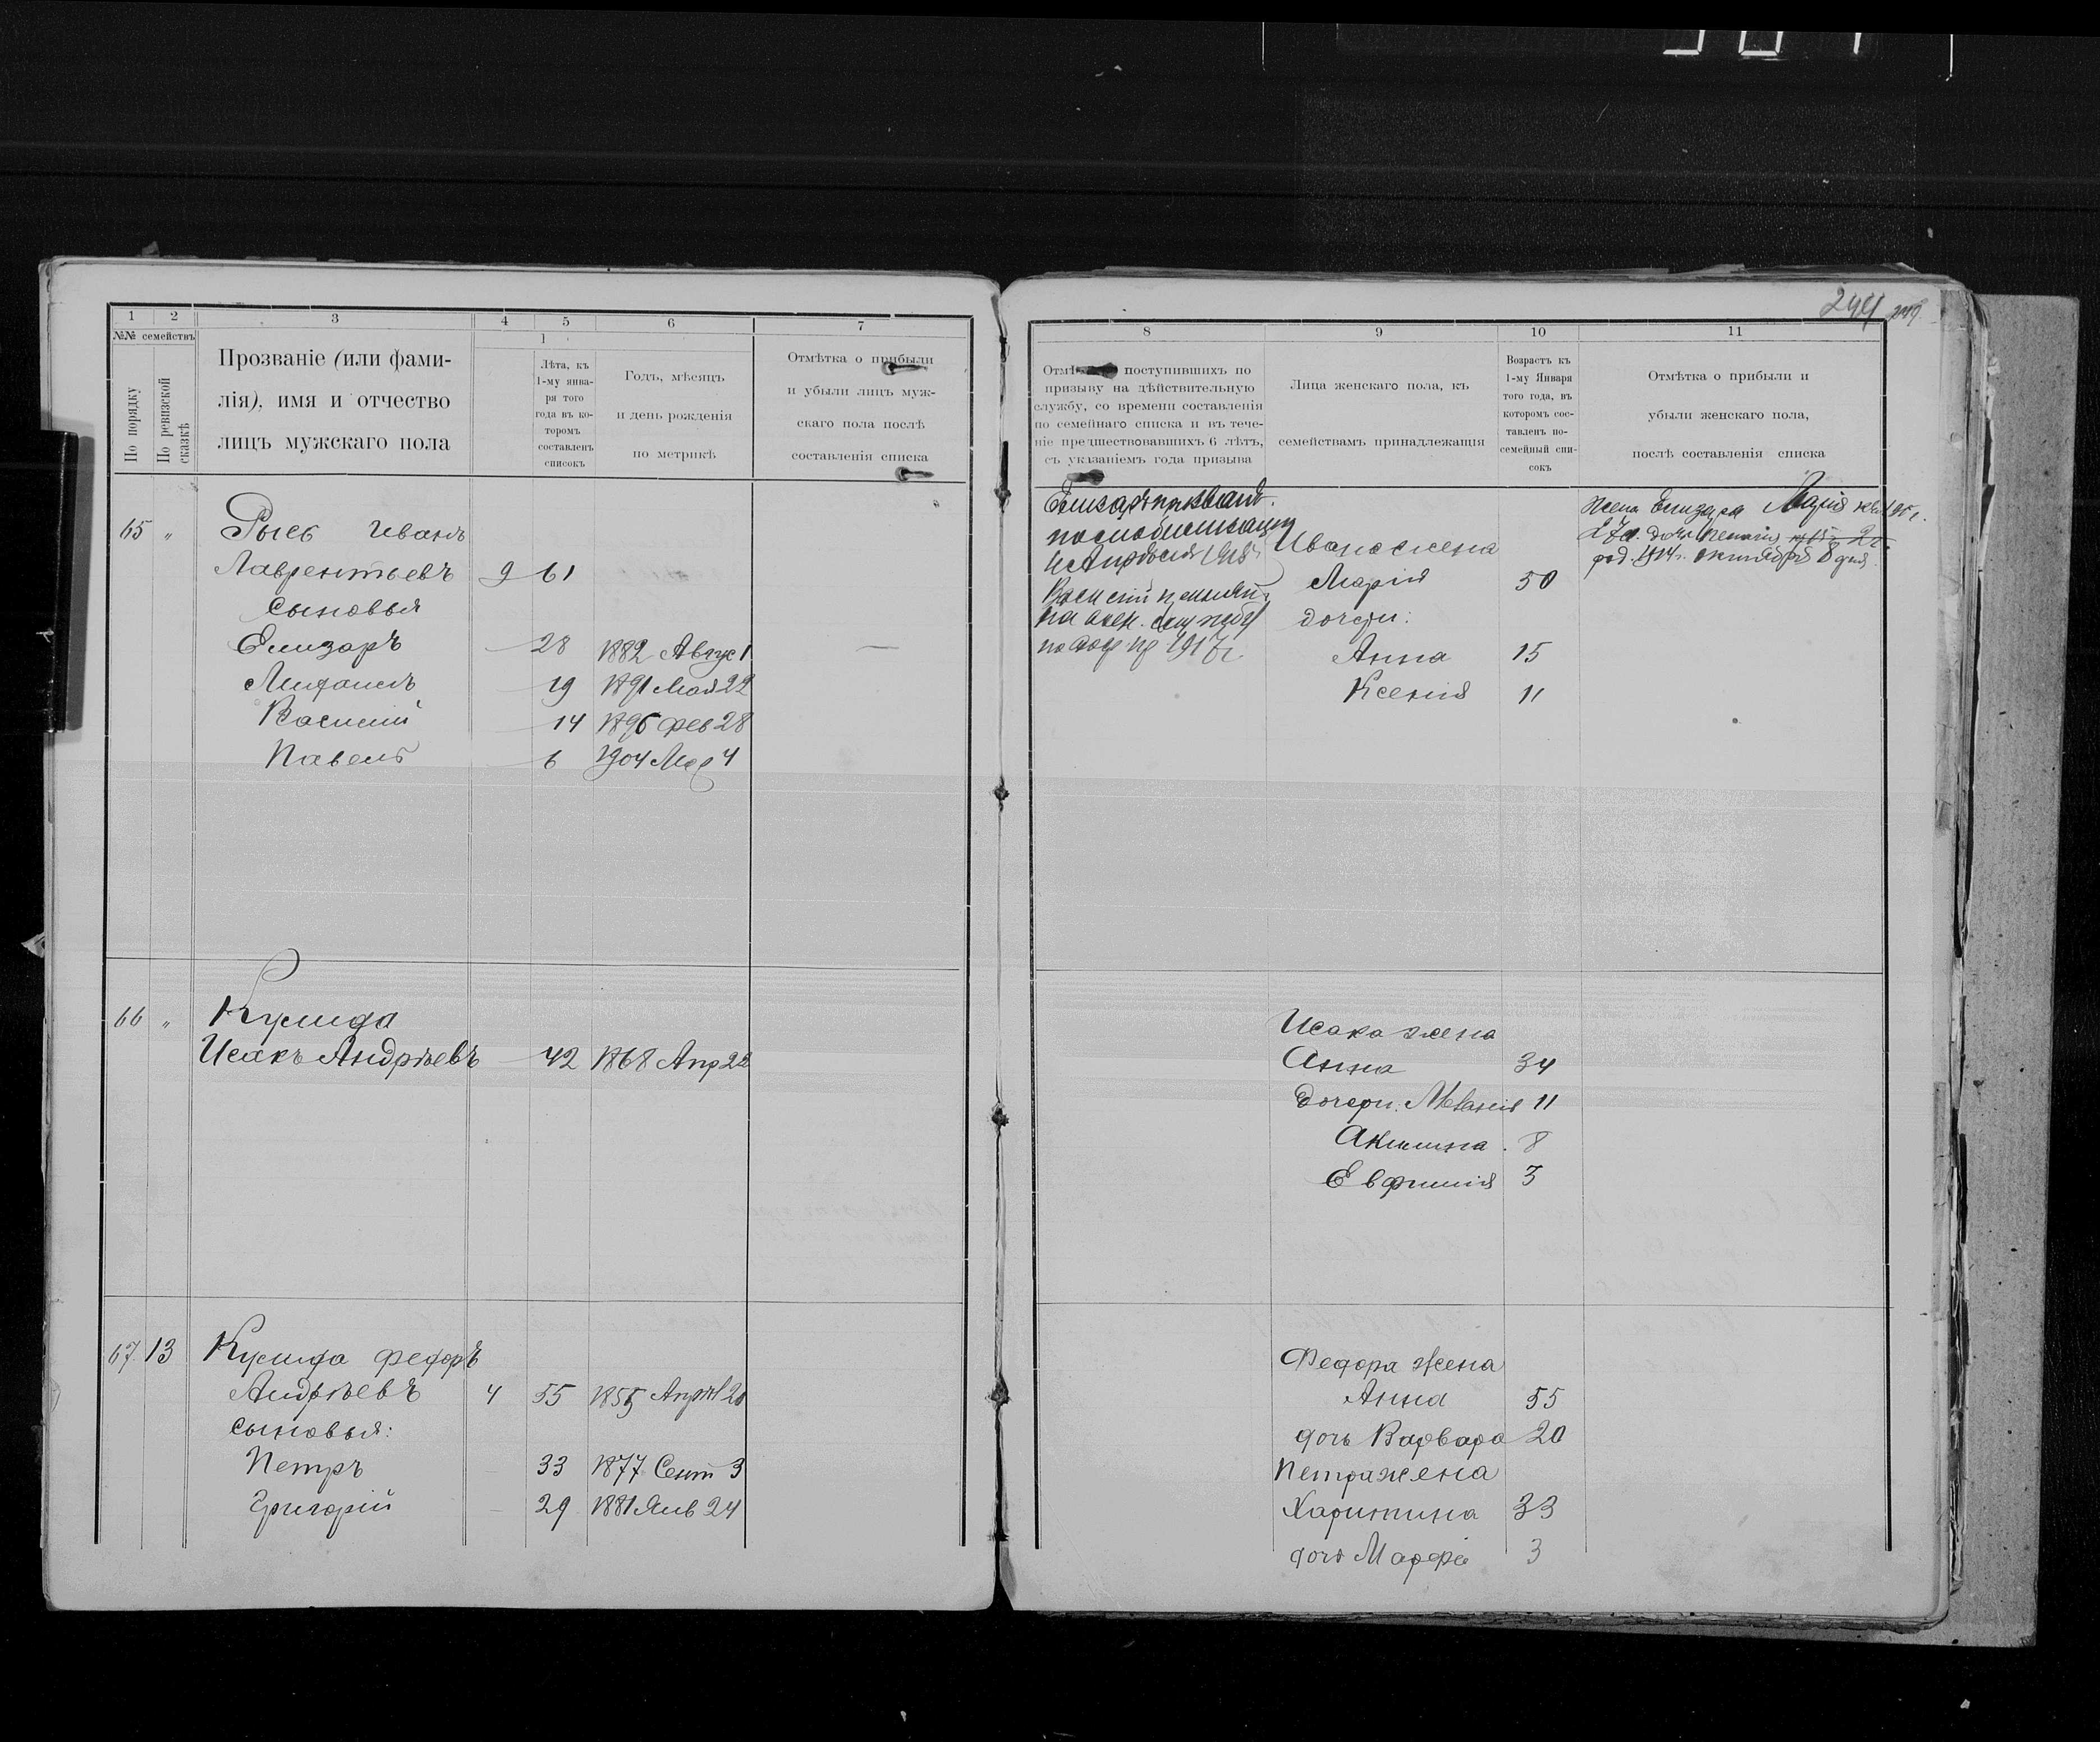 1 2 3 4 5 6 7
№№ семействъ
По порядку
По ревизской сказкѣ
Прозваніе (или фами-
лія), имя и отчество
лицъ мужскаго пола
1
Лѣта, къ
1-му янва-
ря того
года въ ко-
торомъ
составленъ
списокъ
Годъ, мѣсяцъ
и день рожденія
по метрикѣ
Отмѣтка о прибыли
и убыли лицъ муж-
скаго пола послѣ
составленія списка
65 „ Рысь Иванъ
Лаврентьевъ 9 61
сыновья
Елизаръ — 28 1882 Авгус 1 —
— 19 1891 Мая 22
Василій — 14 1896 фев 28
Павелъ — 6 1904 4
66 „
Исакъ Андрѣевъ — 42 1868 Апр 22
67 13 Федоръ
Андрѣевъ 4 55 1855 Апрѣл 20
сыновья:
Петръ — 33 1877 Сент 3
Григорій — 29 1881 Янв 24
244
8 9 10 11
поступившихъ по
призыву на дѣйствительную
службу, со времени составленія
по семейнаго списка и въ тече-
ніе предшествовавшихъ 6 лѣтъ,
съ указаніемъ года призыва
Лица женскаго пола, къ
семействамъ принадлежащія
Возрастъ къ
1-му Января
того года, въ
которомъ сос-
тавленъ по-
семейный спи-
сокъ
Отмѣтка о прибыли и
убыли женскаго пола,
послѣ составленія списка
Елизаръ призванъ
по мобилизаціи
Василій
1917 г
жена Елизара Марія
27 л. дочь
род. 1914 г. октября 8 дня
Ивана жена
Марія 50
дочери:
Анна 15
Ксенія 11
Исака жена
Анна 34
дочери: 11
Акилина 8
Евфимія 3
Федора жена
Анна 55
дочь Варвара 20
Петра жена
Харитина 33
дочь Марфа 3